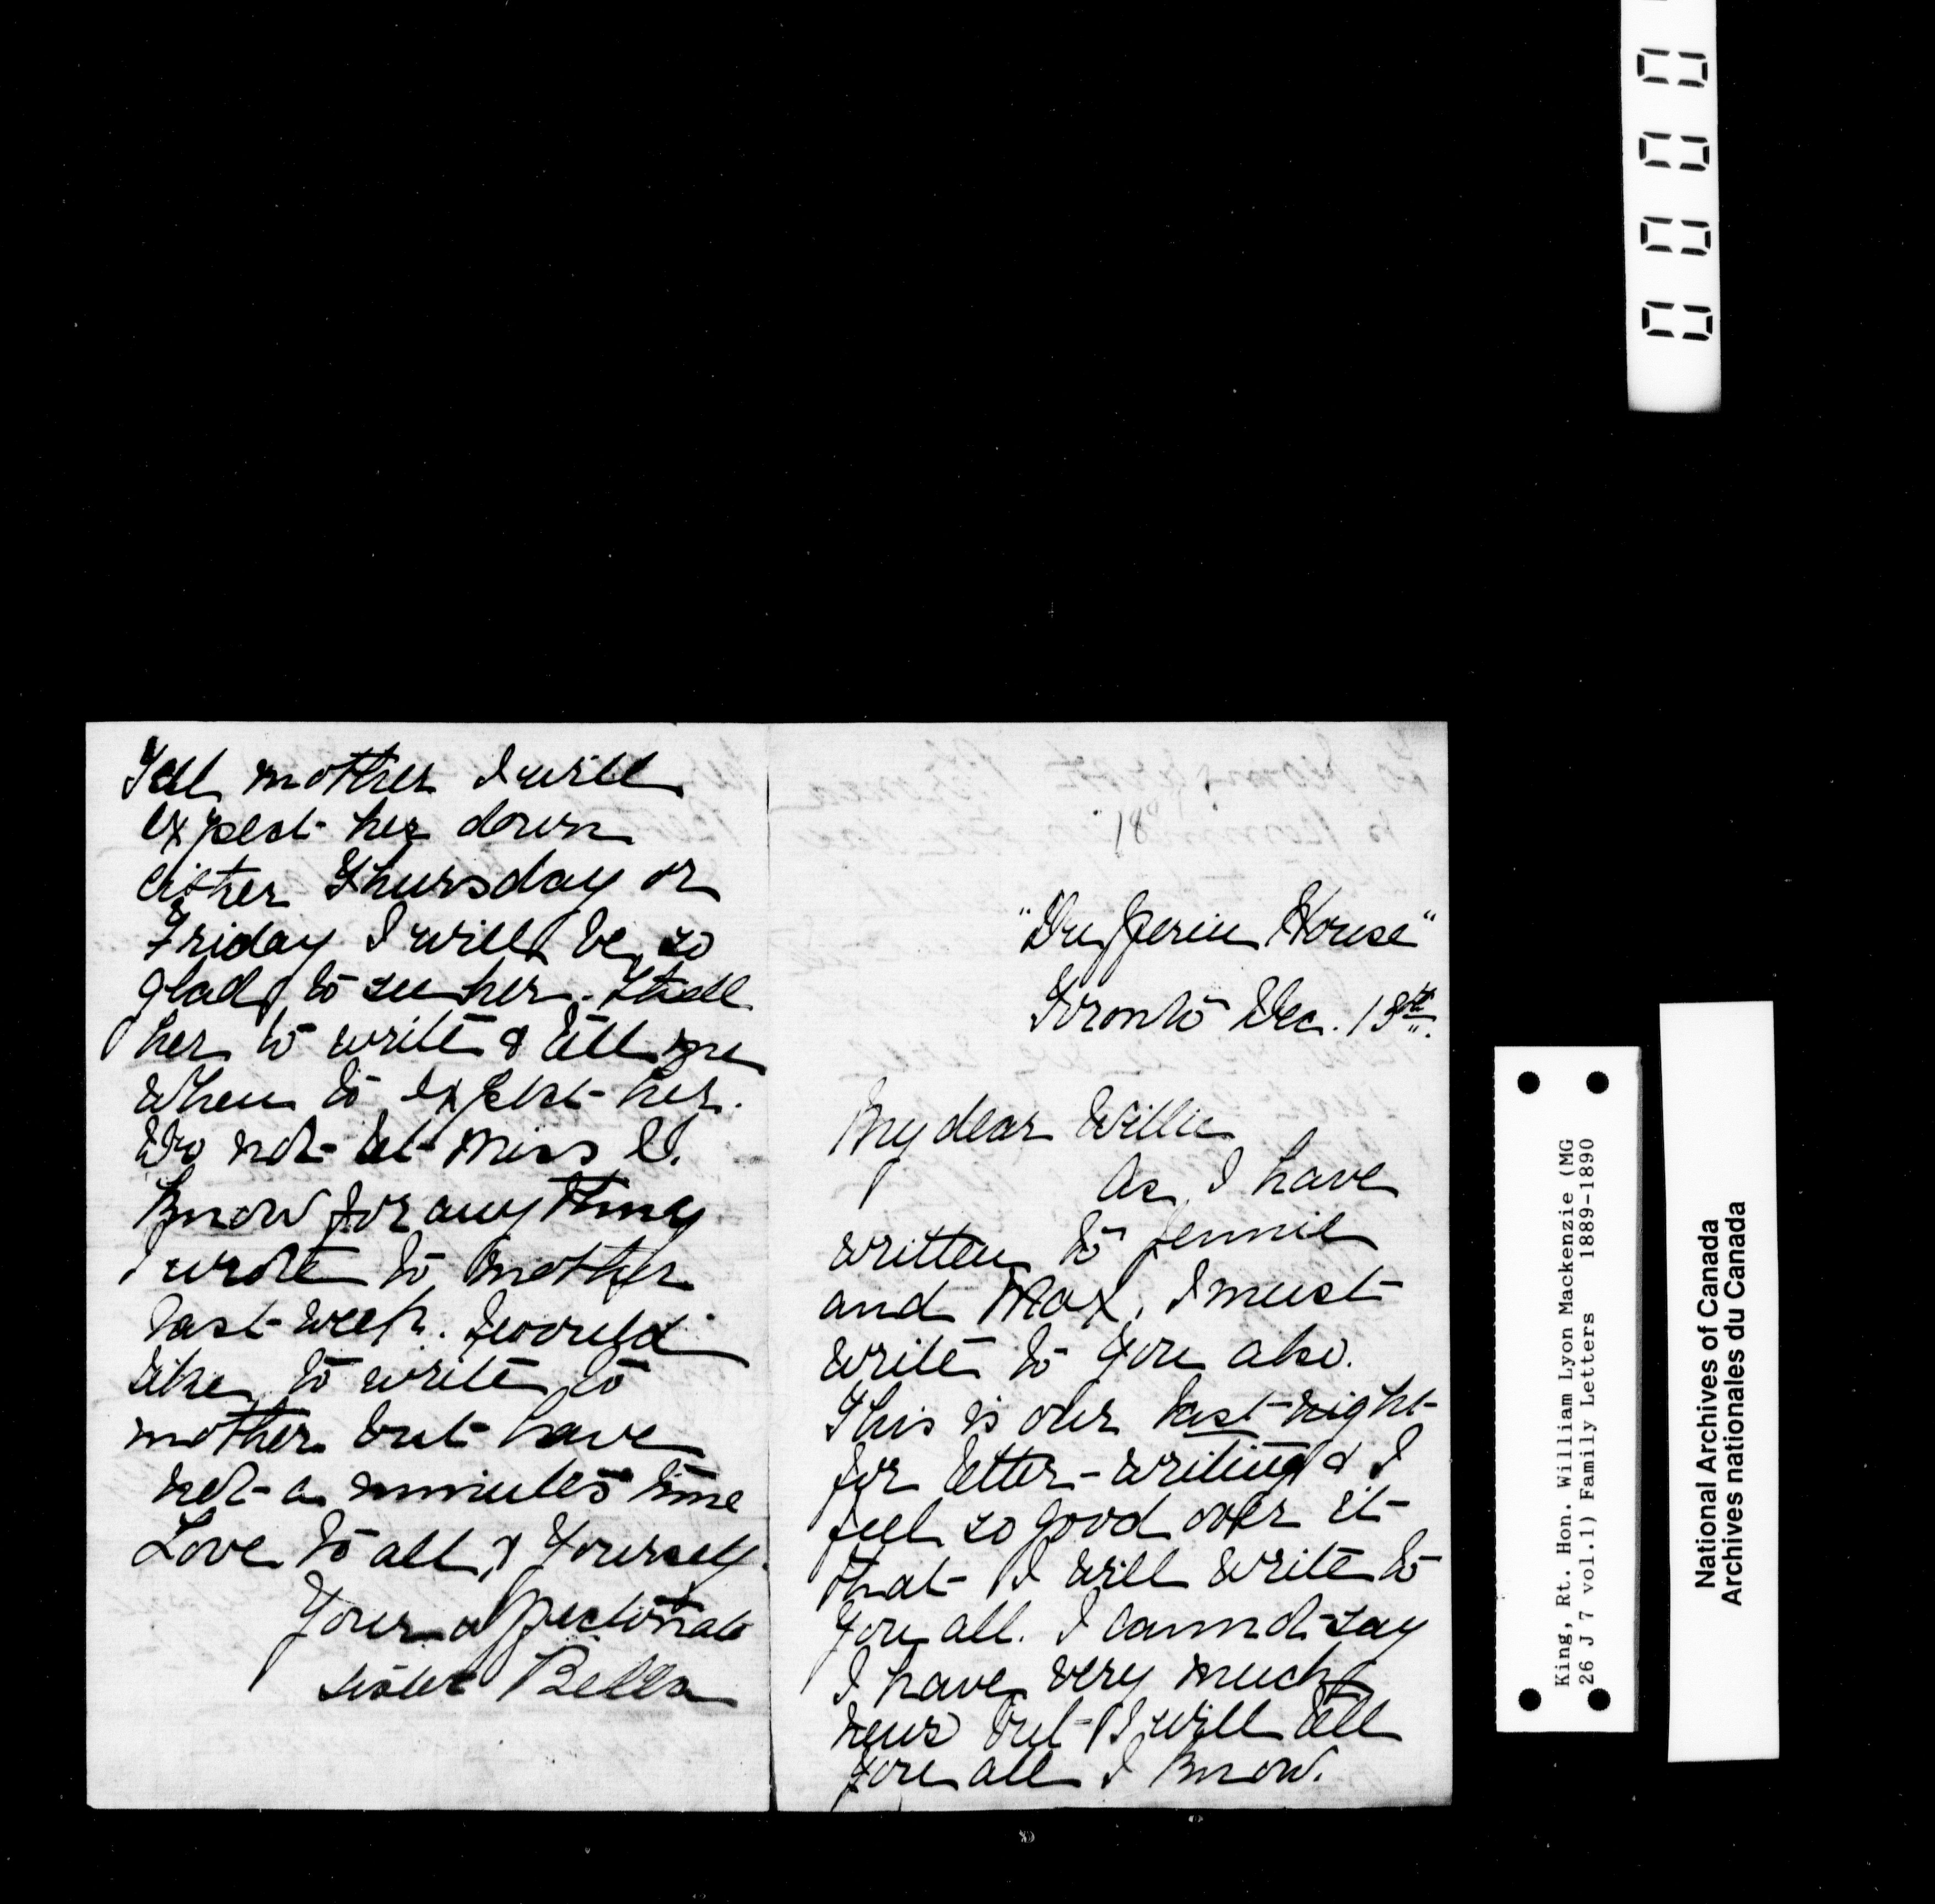 Tell mother I will
expect her down
either Thursday or
Friday I will be so
glad to see her. & tell
her to write & tell me
when to expect her.
Do not let Miss
know for anything
I wrote to mother
last week. I would
like to write to
mother but have
not a minutes time
Love to all & yourself.
Your affectionate
sister Bella
18
"Dufferin House"
Toronto Dec. 13th.
My dear Willie
As I have
written to Jennie
and Max, I must
write to you also.
This is our last night
for letter-writing & I
feel so good over it
that I will write to
you all. I cannot say
I have very much
news but I will tell
you all I know.
King, Rt. Hon. William Lyon Mackenzie (MG
26 J 7 vol.1) Family Letters 1889-1890
National Archives of Canada
Archives nationales du Canada